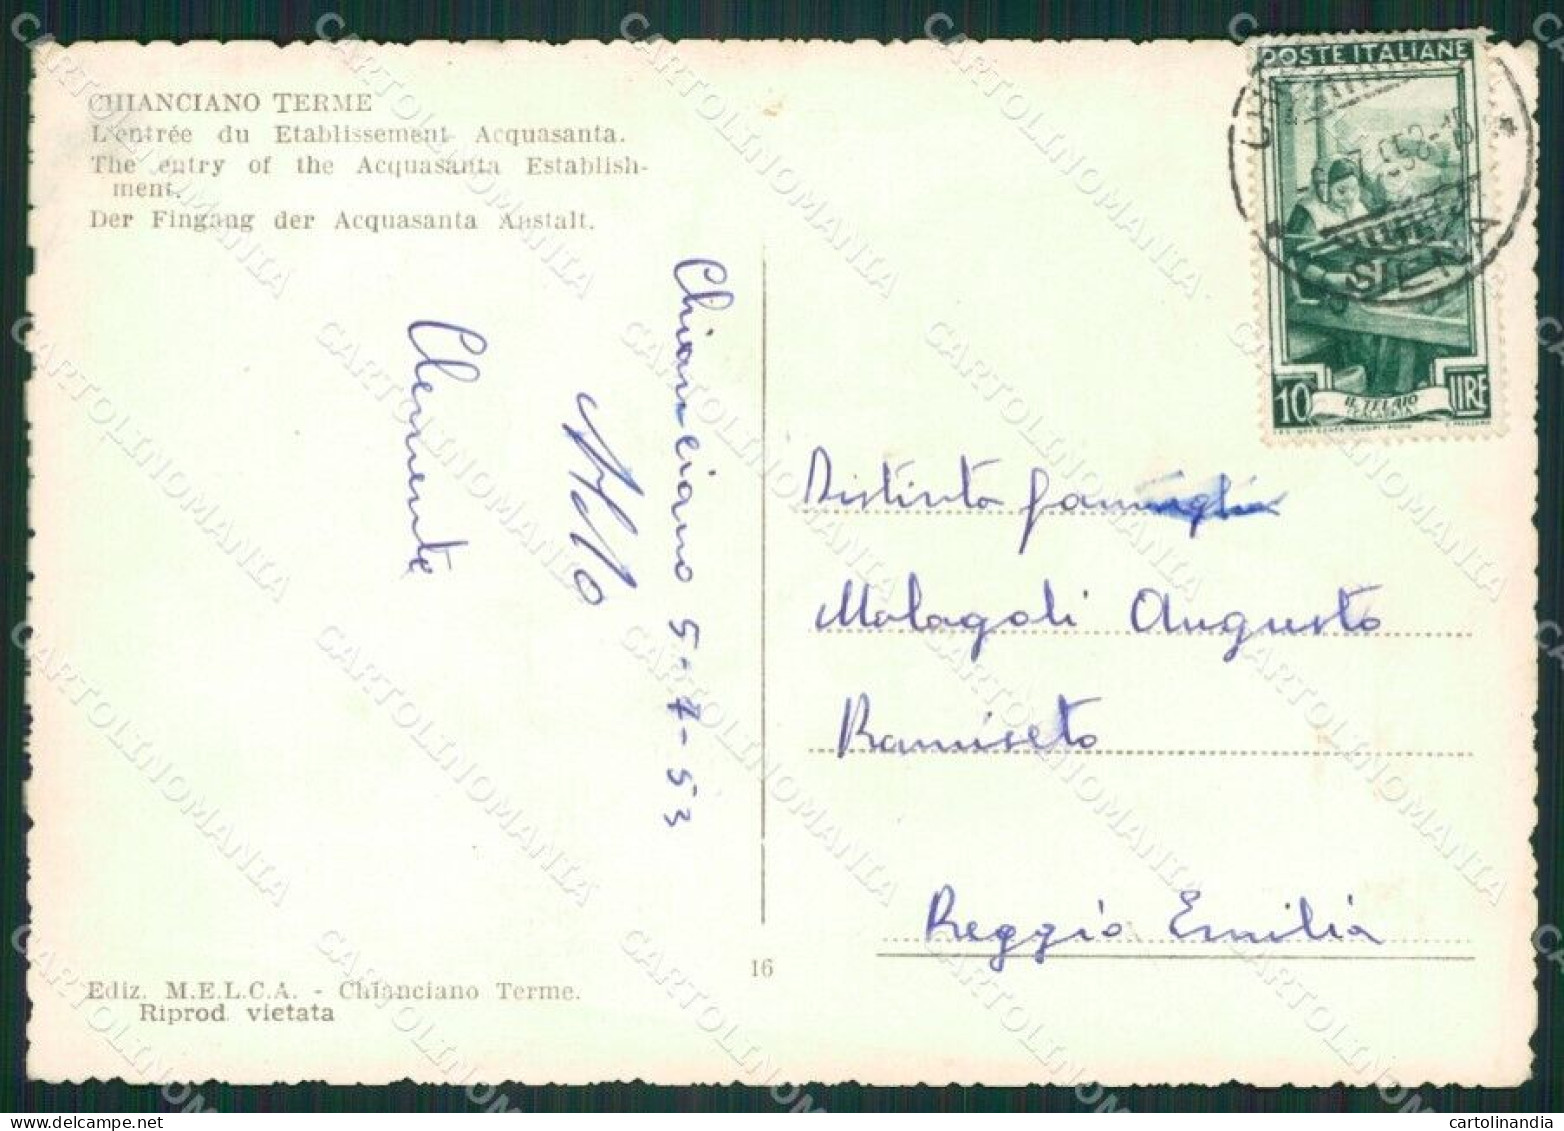 CHIANCIANO TERME
L'entrée du Etablissement Acquasanta.
The entry of the Acquasanta Establish-
ment.
Der Fingang der Acquasanta Anstalt.
Chianciano 5-7-53
Aldo
Clemente
POSTE ITALIANE
SIENA
10 IL TELAIO LIRE
Distinta famiglia
Malagoli Augusto
Ramiseto
Reggio Emilia
16
Ediz. M.E.L.C.A. - Chianciano Terme.
Riprod. vietata
CARTOLINOMANIA
cartolinandia